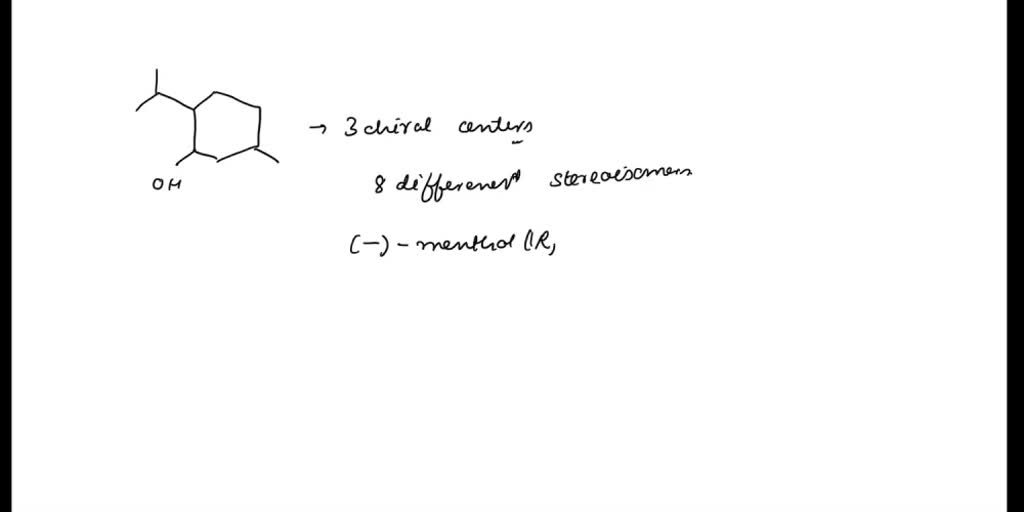 → 3 chiral centers
OH
8 different stereoisomers
(-) - menthol (1R,